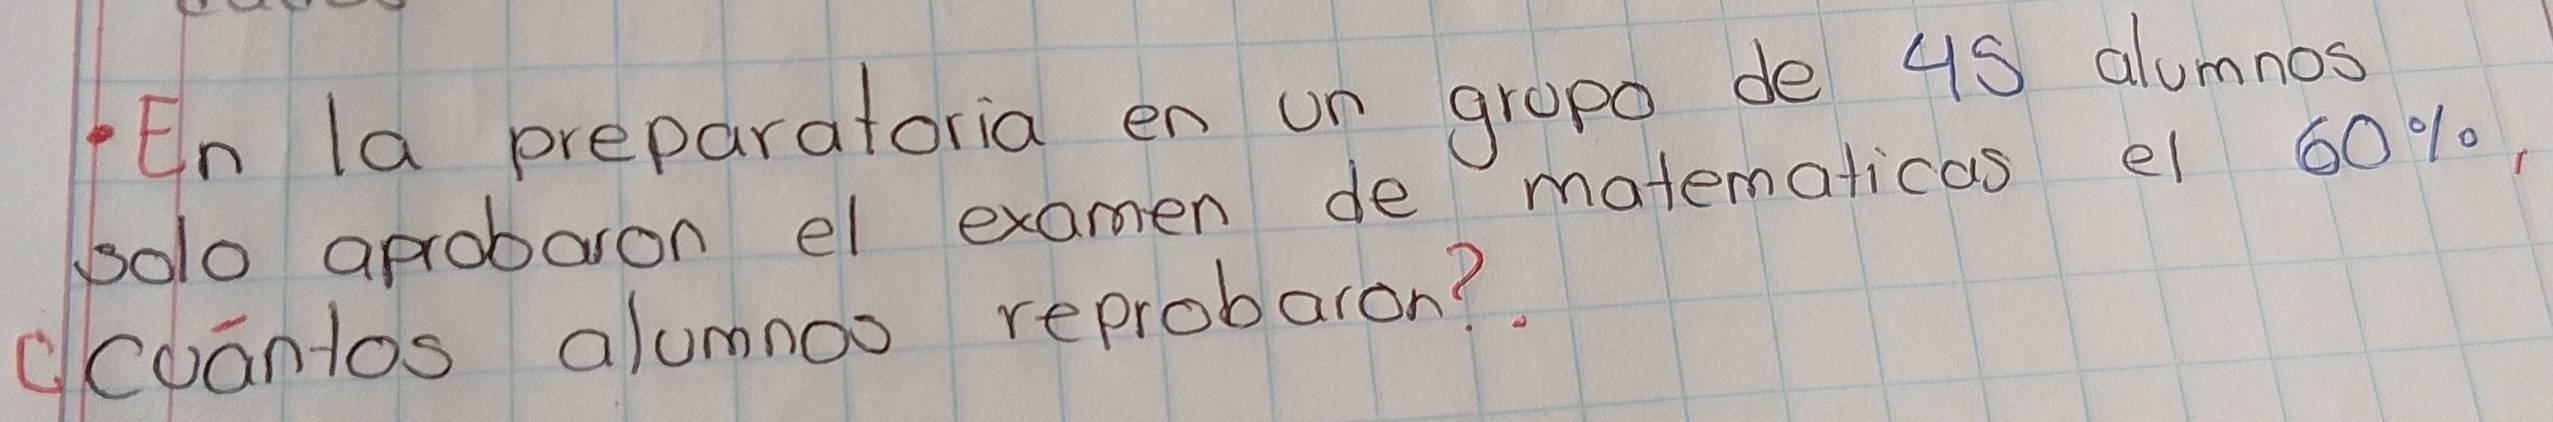 • En la preparatoria en un grupo de 45 alumnos
solo aprobaron el examen de matematicas el 60%,
¿cuántos alumnos reprobaron?.